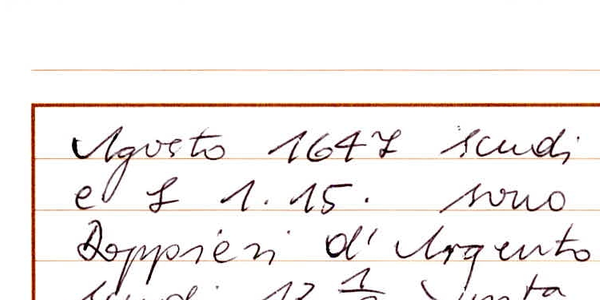 Agosto 1647 scudi
e £ 1.15. sono
Doppieri d'Argento
scudi 12 1/2 Junta